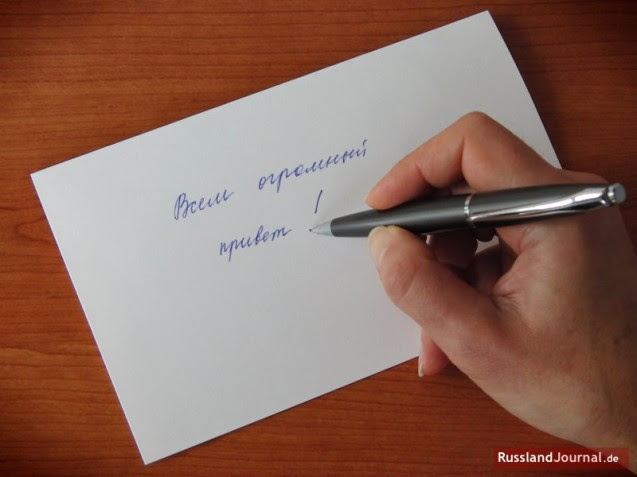 Всем огромный
привет !
RusslandJournal.de